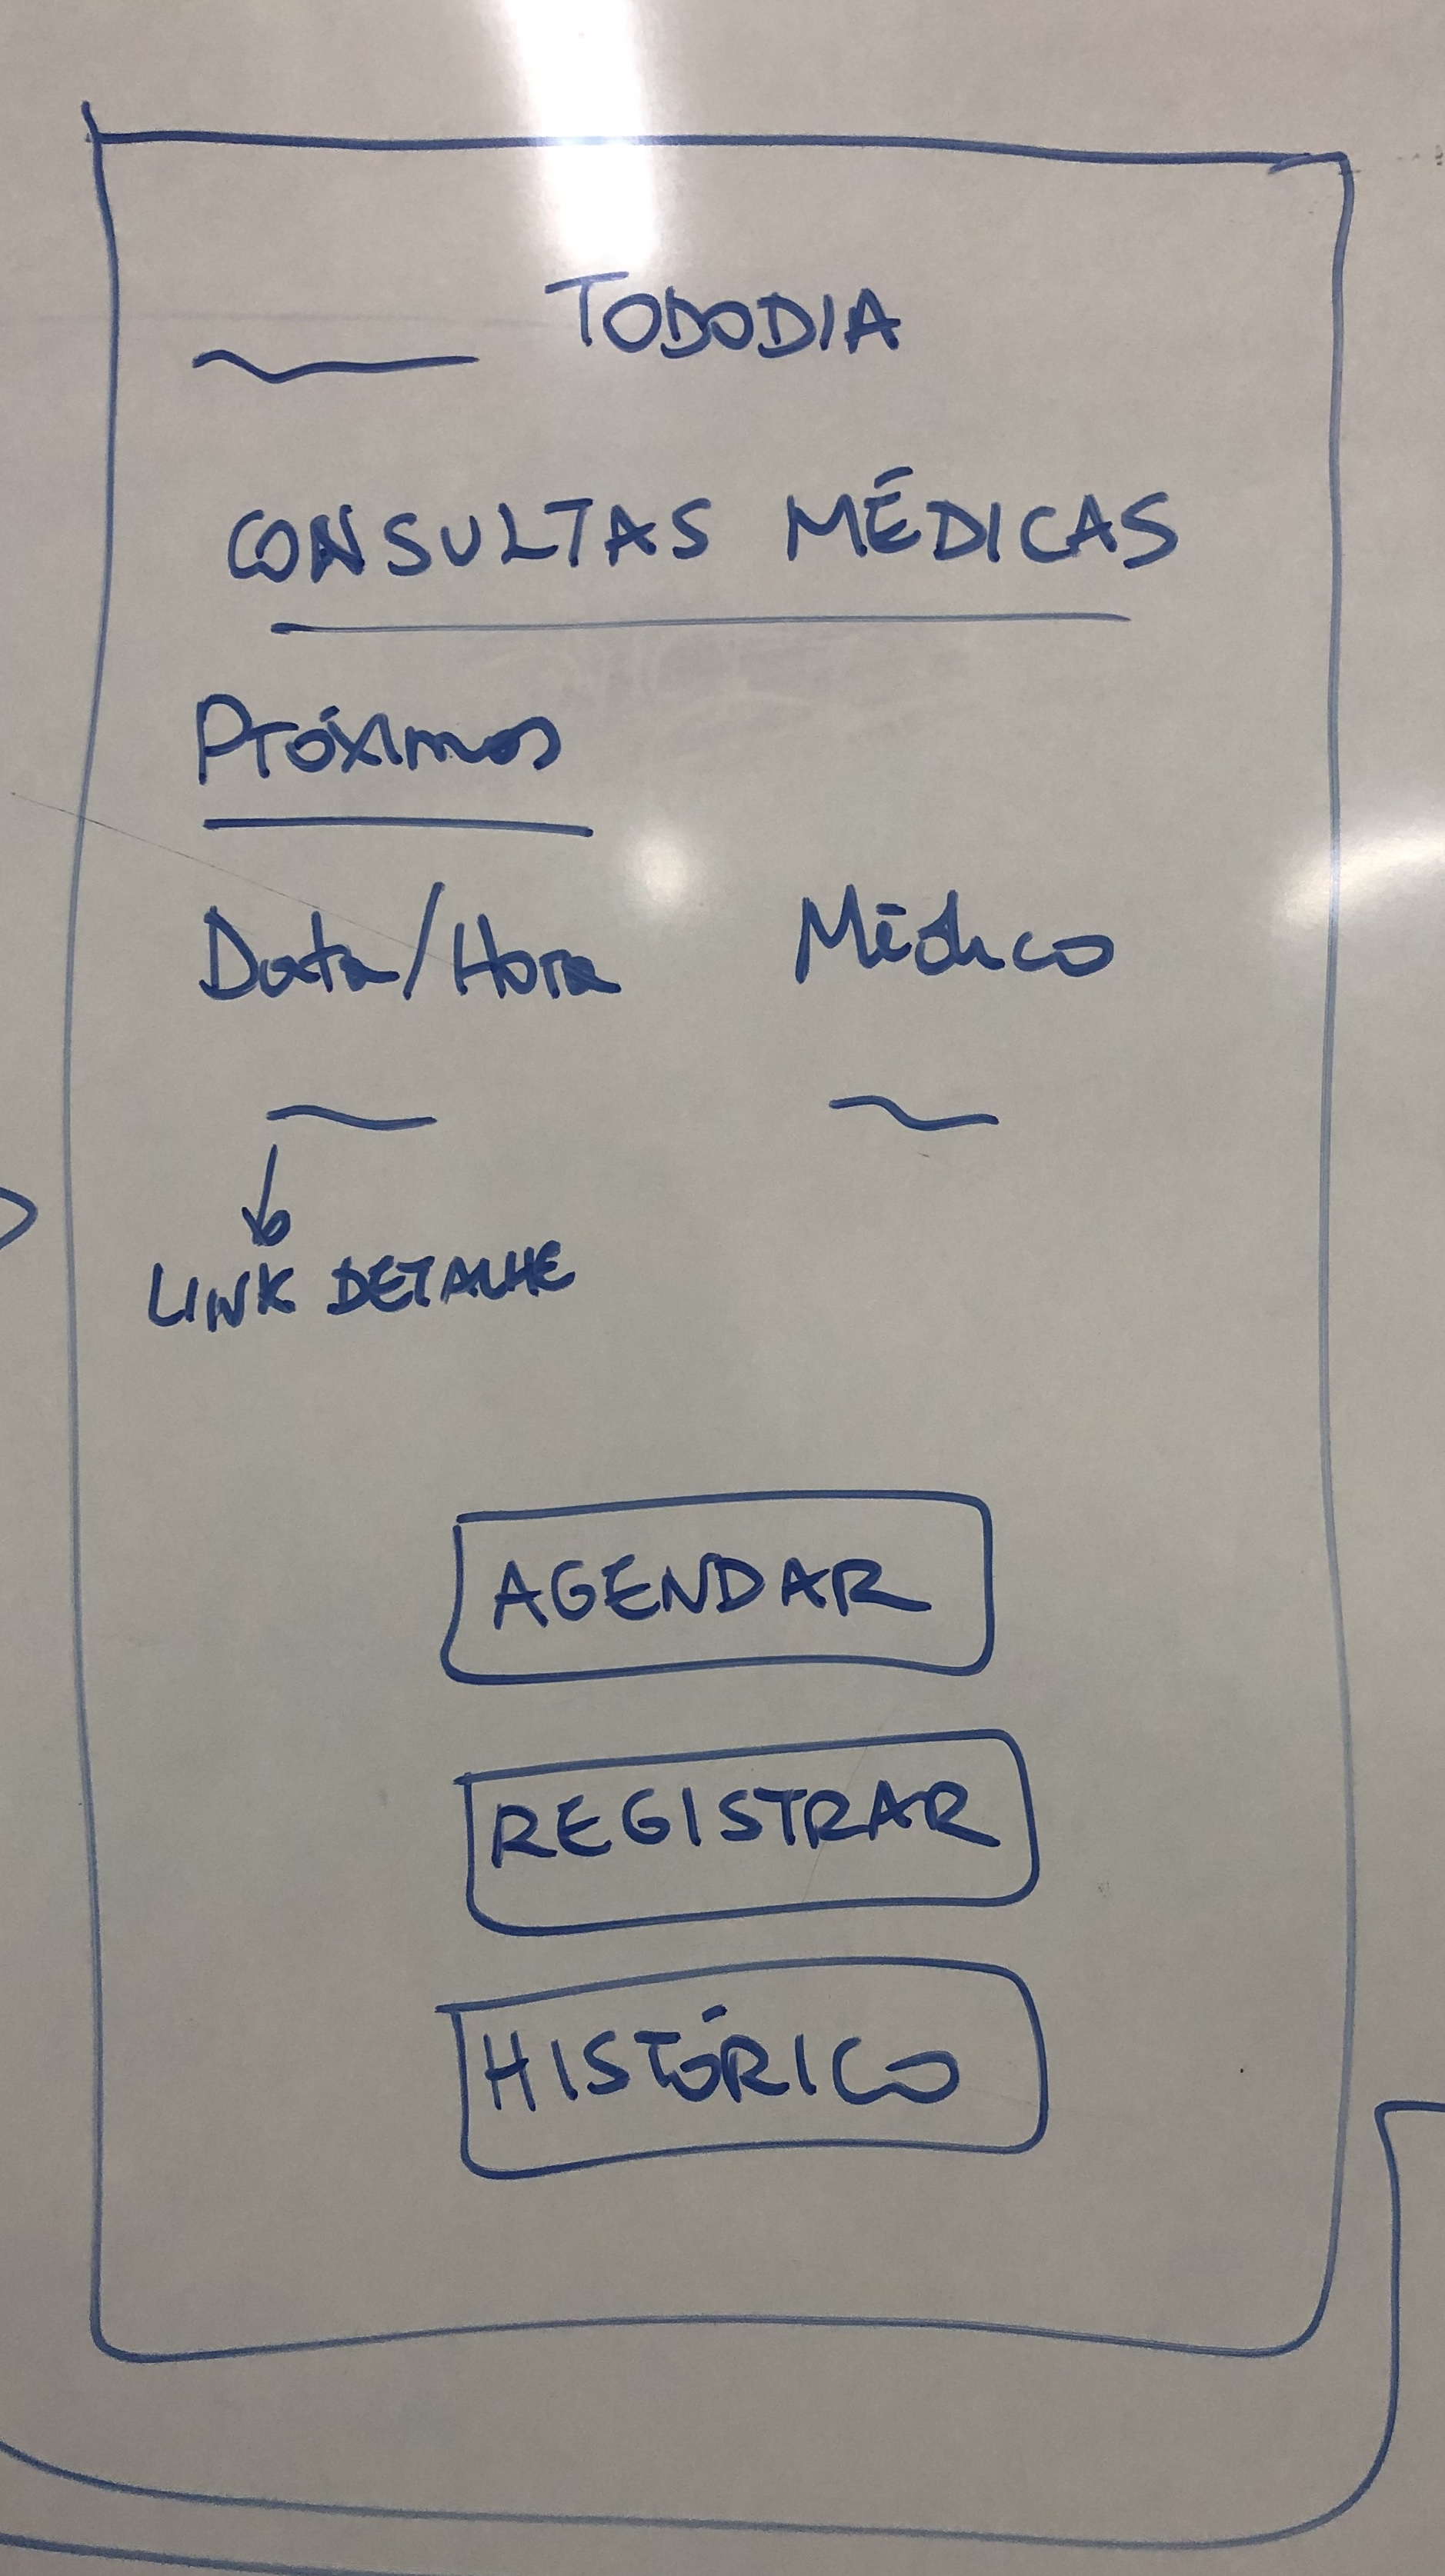 TODODIA
CONSULTAS MÉDICAS
Próximos
Data/Hora Médico
LINK DETALHE
AGENDAR
REGISTRAR
HISTÓRICO